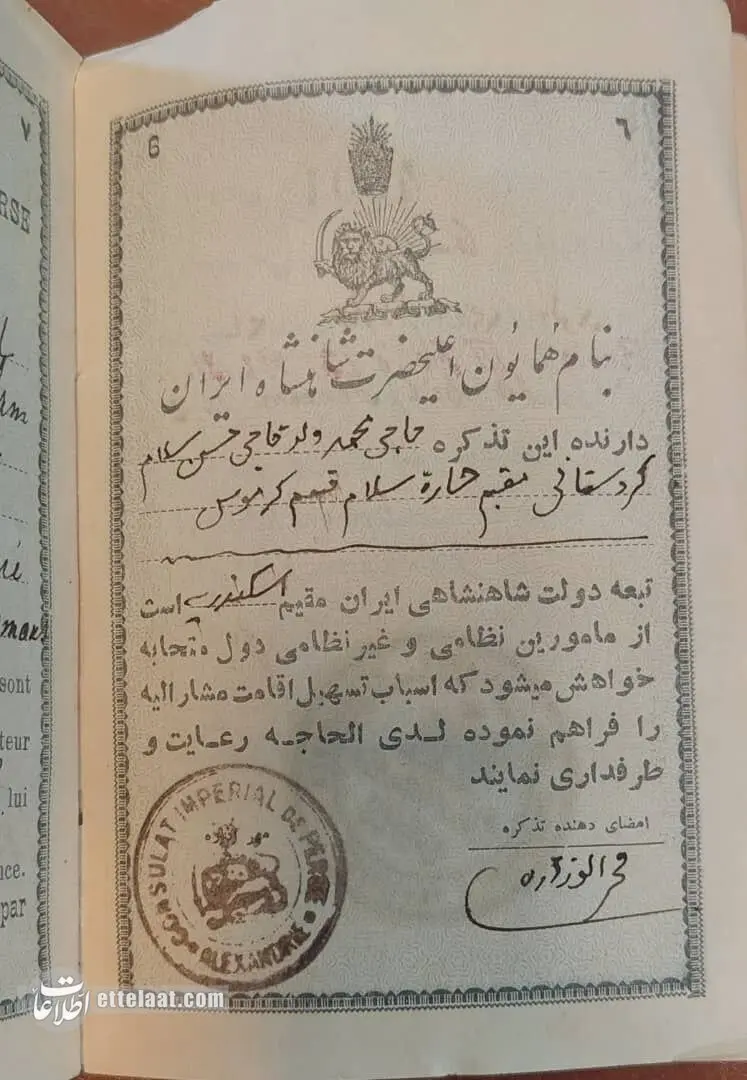 RSE
۷
sont
teur
lui
ce.
par
6
٦
بنام همایون اعلیحضرت شاهنشاه ایران
دارنده این تذکره حاجی محمد ولد حاجی حسن سلام
کردستانی مقیم حارة سلام قسم کرموس
تبعه دولت شاهنشاهی ایران مقیم اسکندریه است
از مامورین نظامی و غیر نظامی دول متحابه
خواهش میشود که اسباب تسهیل اقامت مشارالیه
را فراهم نموده لدی الحاجه رعایت و
طرفداری نمایند
امضای دهنده تذکره
CONSULAT IMPERIAL DE PERSE
ALEXANDRIE
اطلاعات ettelaat.com